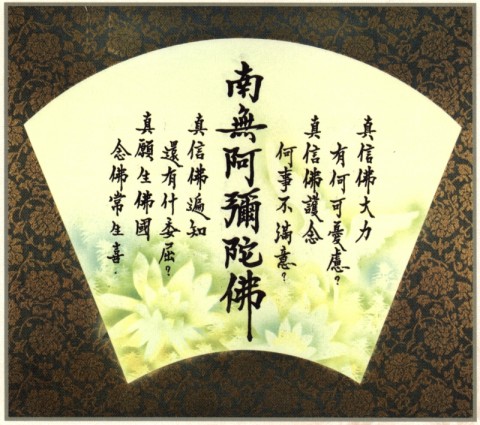 真信佛大力
有何可憂慮?
真信佛護念
何事不滿意?
南無阿彌陀佛
真信佛遍知
還有什委屈?
真願生佛國
念佛常生喜.